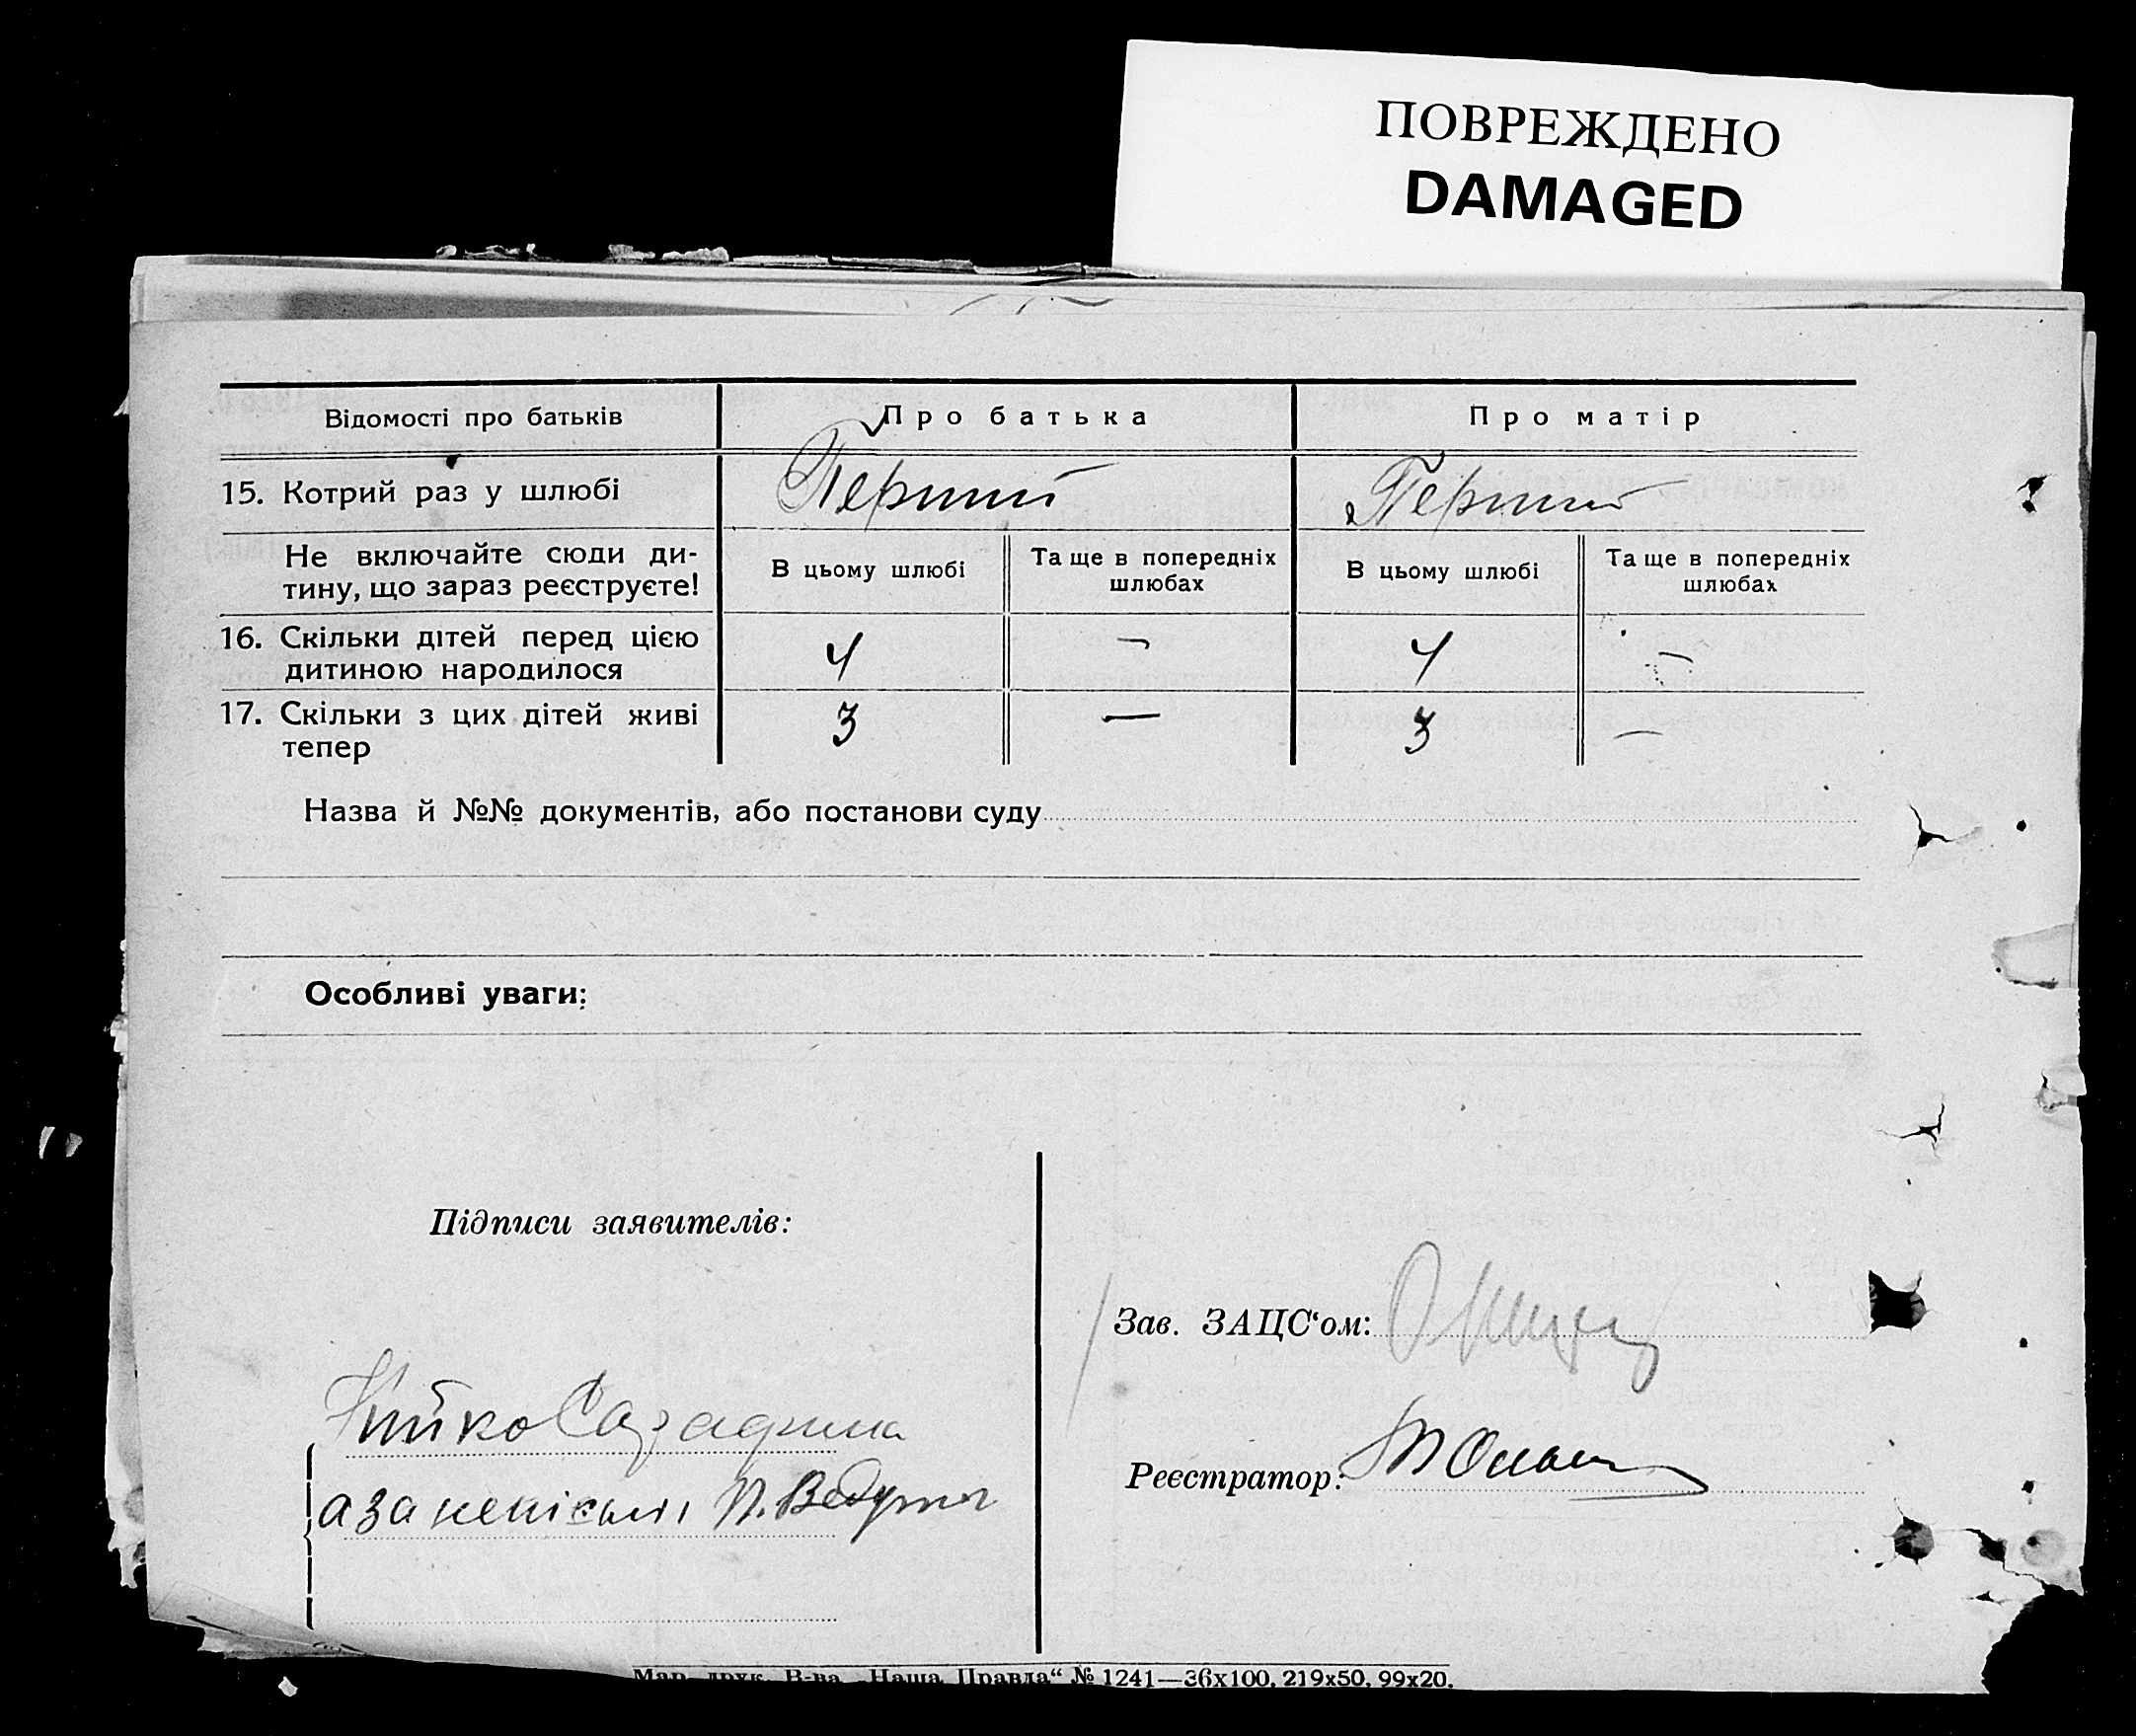 ПОВРЕЖДЕНО
DAMAGED
Відомості про батьків
Про батька
Про матір
15. Котрий раз у шлюбі
Перший
Перший
Не включайте сюди ди-
тину, що зараз реєструєте!
В цьому шлюбі
Та ще в попередніх
шлюбах
В цьому шлюбі
Та ще в попередніх
шлюбах
16. Скільки дітей перед цією
дитиною народилося
4
—
4
—
17. Скільки з цих дітей живі
тепер
3
—
3
—
Назва й №№ документів, або постанови суду
Особливі уваги:
Підписи заявителів:
Зав. ЗАЦС‘ом:
Реєстратор:
а за
Мар. друк. В-ва „Наша Правда“ № 1241—36х100, 219х50, 99х20.